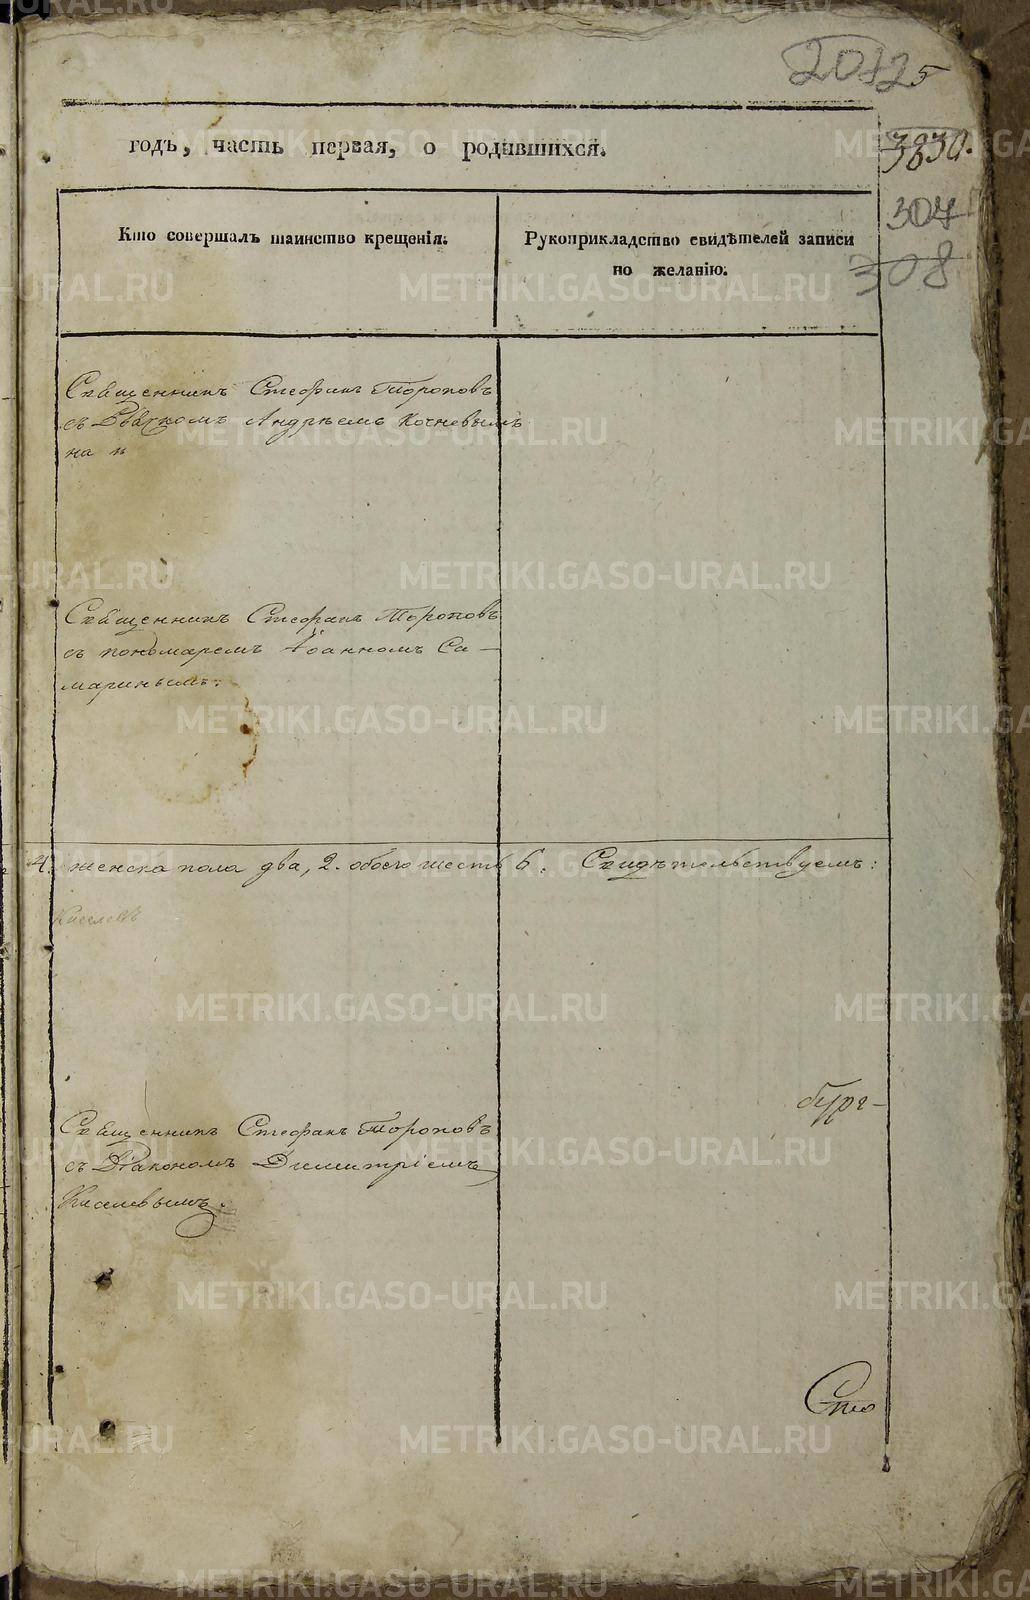 2012 5
годъ, часть первая, о родившихся.
3830.
304
308
Кто совершалъ таинство крещенія.
Рукоприкладство свидѣтелей записи
по желанію.
Священникъ Стефанъ Тороповъ
съ Дьячкомъ Андреемъ Кочневымъ
на
Священникъ Стефанъ Тороповъ
съ пономаремъ Іоанномъ Са-
маринымъ.
4. женска пола два, 2. обоего шесть 6. Свидѣтельствуемъ:
Киселевъ
бург-
Священникъ Стефанъ Тороповъ
съ Діакономъ Димитріемъ
Киселевымъ.
METRIKI.GASO-URAL.RU